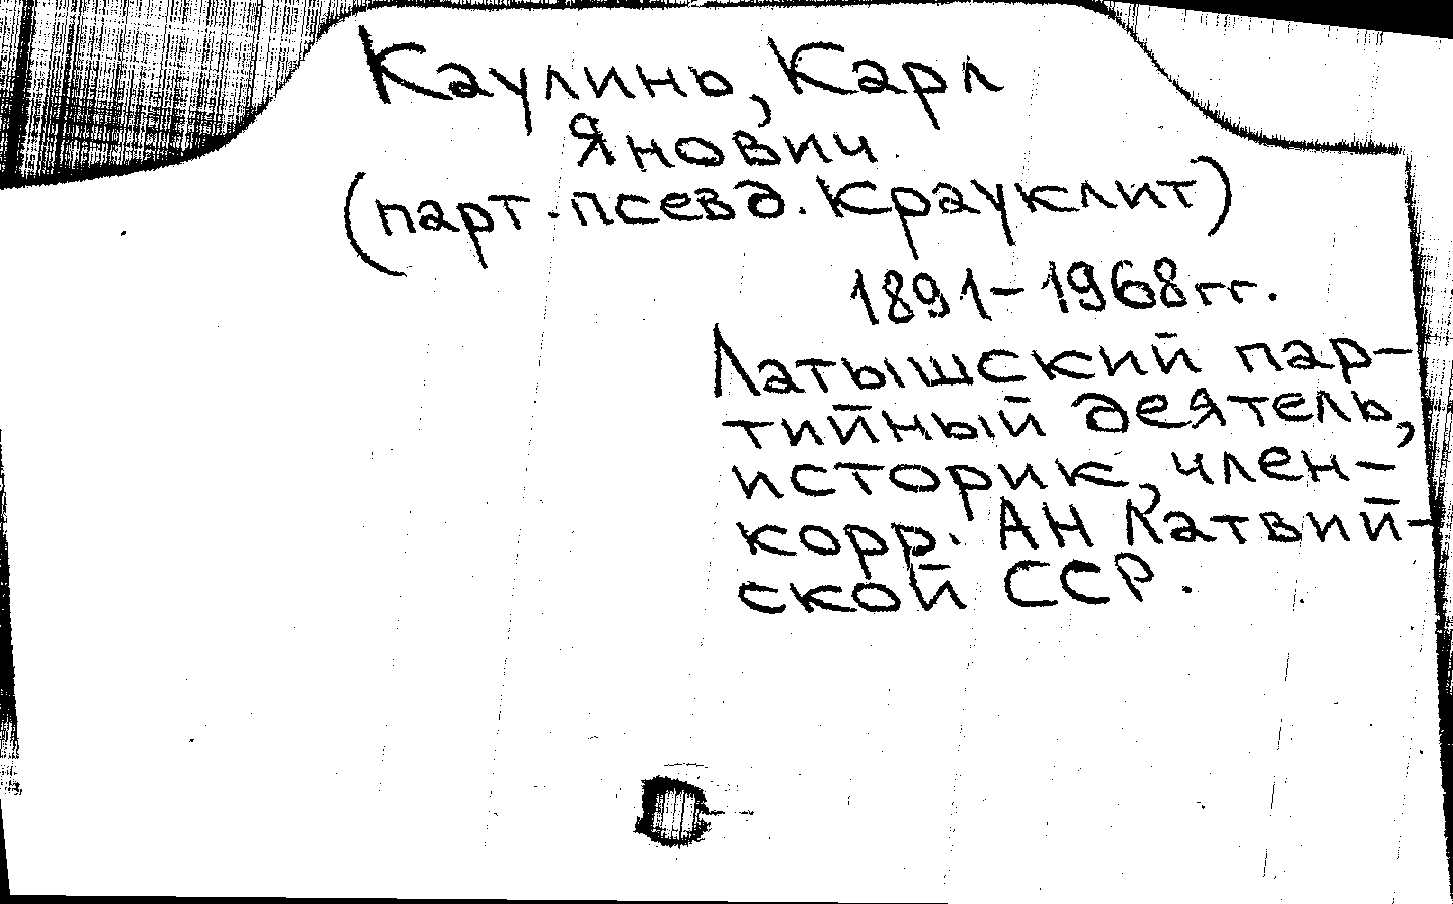 Каулинь, Карл
Янович.
(парт. псевд. Крауклит)
1891-1968гг.
Латышский пар-
тийный деятель,
историк, член-
корр. АН Латвий-
ской ССР.